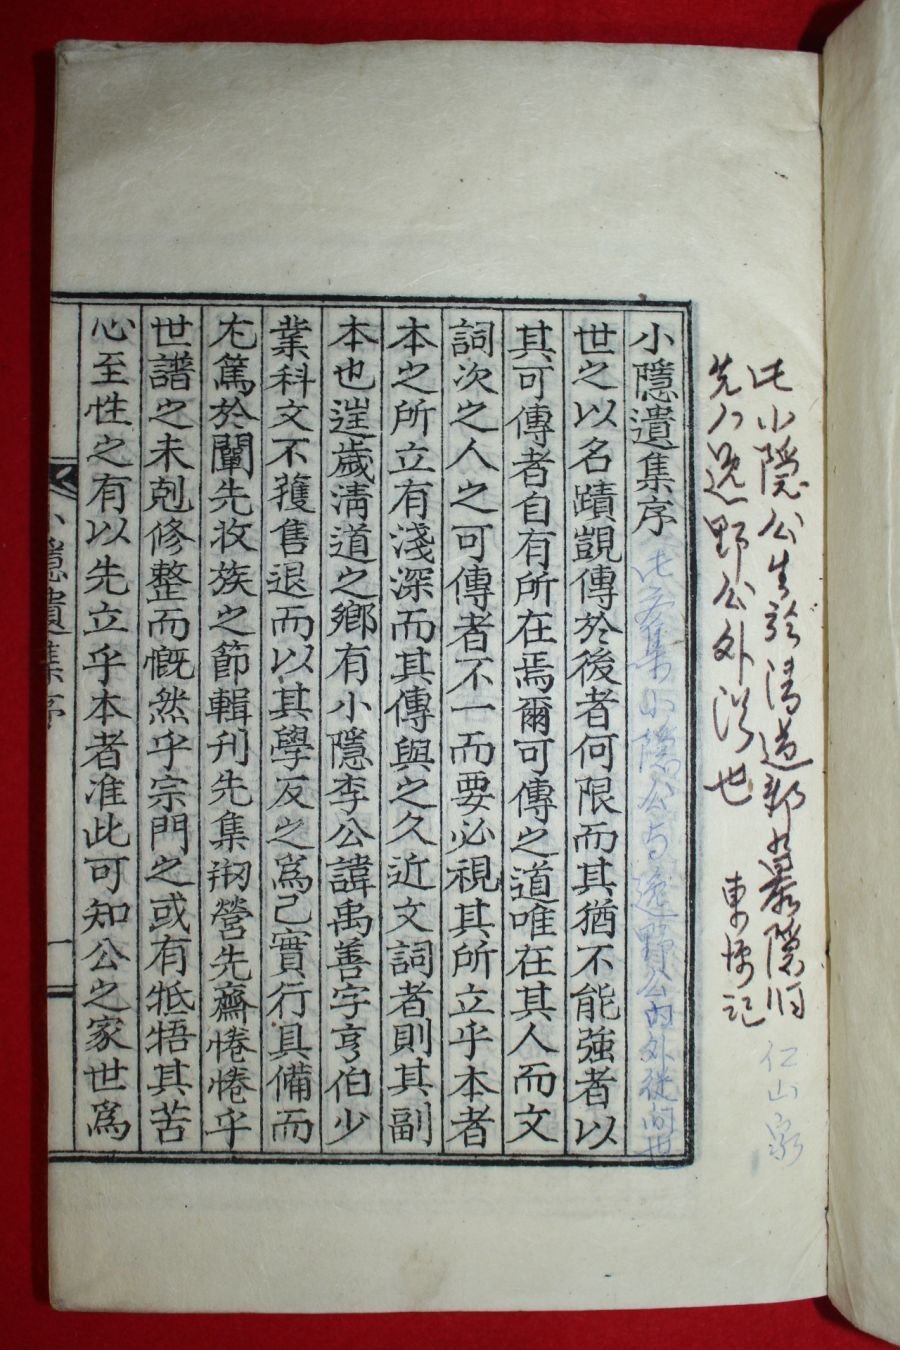 此小隱公生於淸道郡
先人逸野公外從也
東
記
仁山家
小隱遺集序
此文集小隱公与逸野公內外從間也
世之以名蹟覬傳於後者何限而其猶不能強者以
其可傳者自有所在焉爾可傳之道唯在其人而文
詞次之人之可傳者不一而要必視其所立乎本者
本之所立有淺深而其傳與之久近文詞者則其副
本也逞歲淸道之鄕有小隱李公諱禹善字亨伯少
業科文不獲售退而以其學反之爲己實行具備而
尤篤於闡先收族之節輯刊先集刱營先齋惓惓乎
世譜之未剋修整而慨然乎宗門之或有牴牾其苦
心至性之有以先立乎本者准此可知公之家世爲
小隱遺集序
一